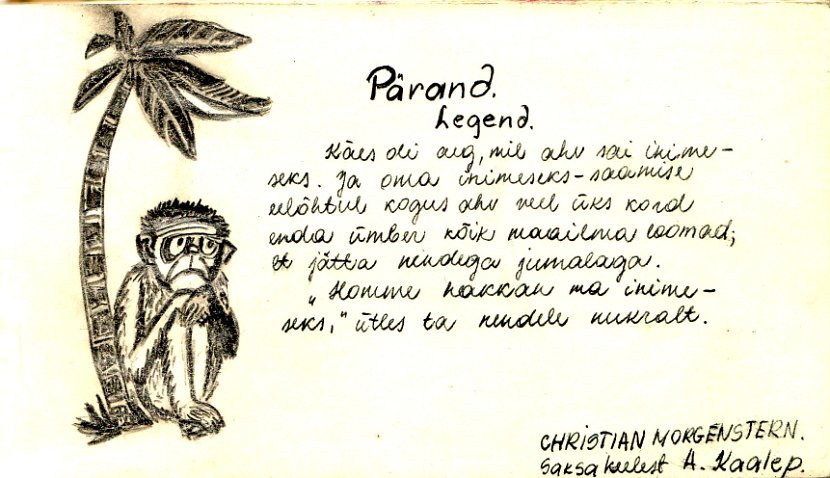 Pärand.
Legend.
Käes oli aeg, mil ahv sai inime-
seks. Ja oma inimeseks-saamise
eelõhtul kogus ahv veel üks kord
enda ümber kõik maailma loomad,
et jätta nendega jumalaga.
„Homme hakkan ma inime-
seks," ütles ta nendele nukralt.
CHRISTIAN MORGENSTERN.
Saksa keelest A. Kaalep.